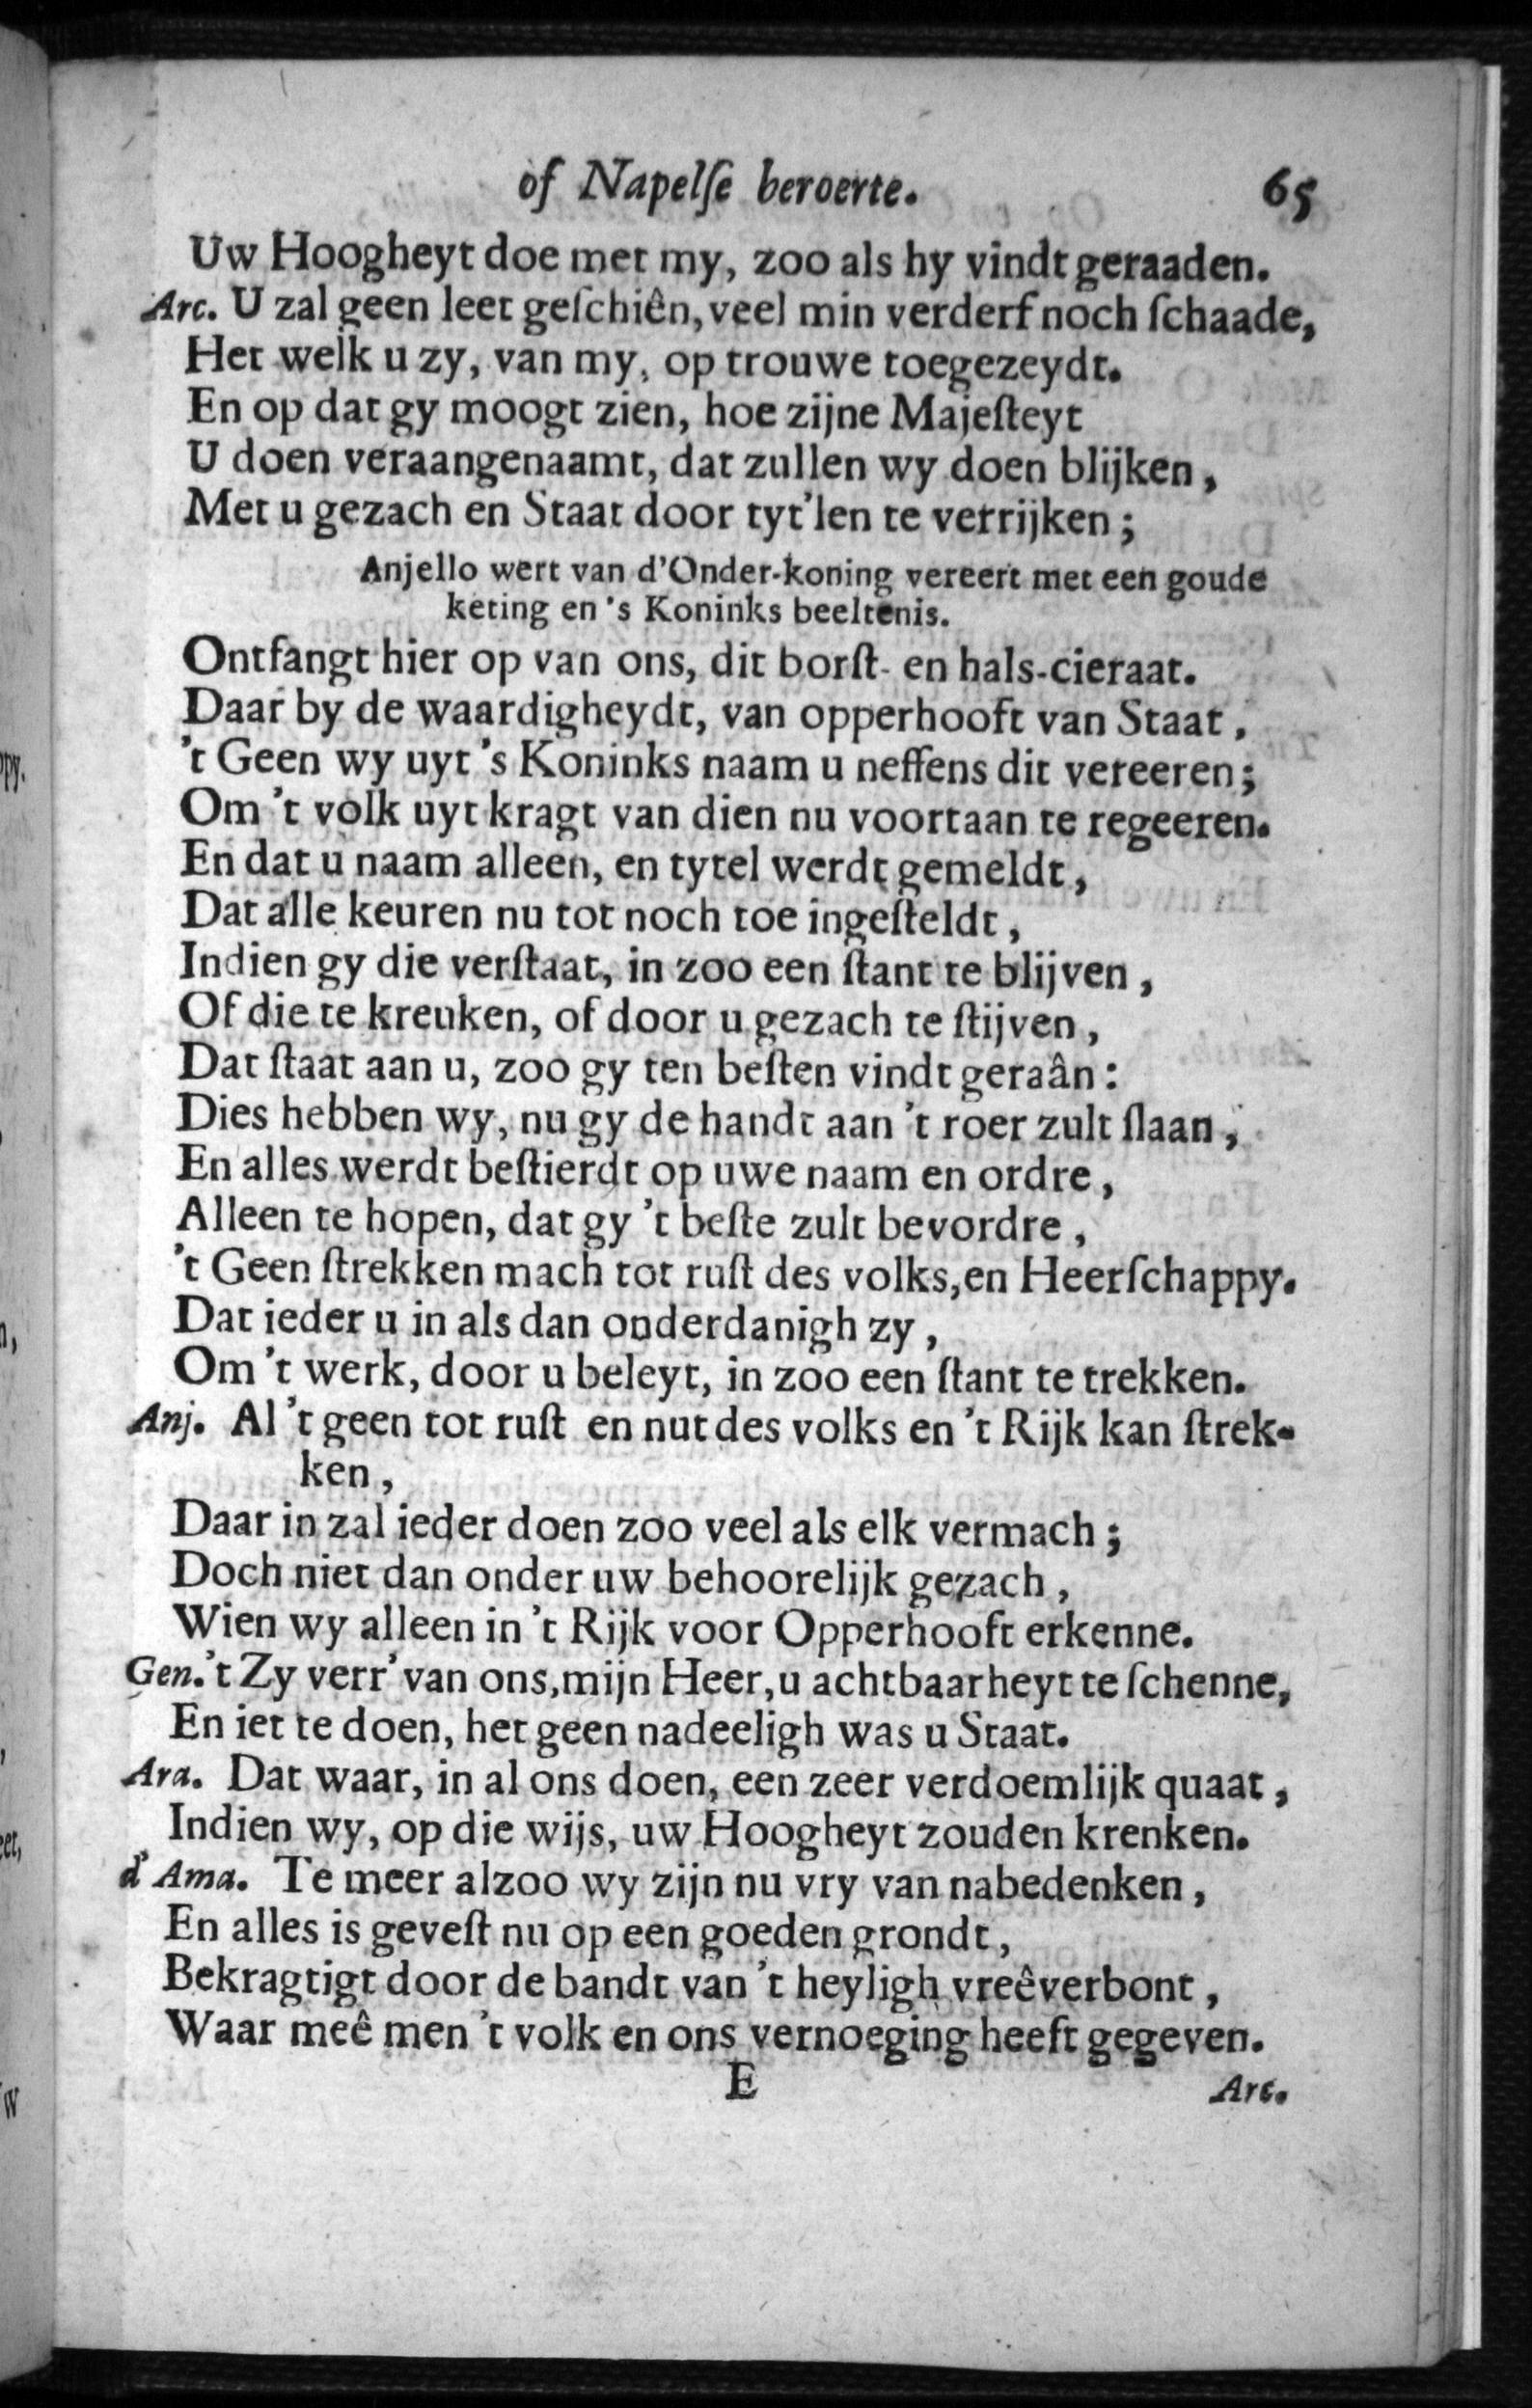 of Napelſe beroerte. 65
Uw Hoogheyt doe met my, zoo als hy vindt geraaden.
Arc. U zal geen leet geſchiên, veel min verderf noch ſchaade,
Het welk u zy, van my, op trouwe toegezeydt.
En op dat gy moogt zien, hoe zijne Majeſteyt
U doen veraangenaamt, dat zullen wy doen blijken,
Met u gezach en Staat door tyt'len te verrijken;
Anjello wert van d'Onder-koning vereert met een goude
keting en 's Koninks beeltenis.
Ontfangt hier op van ons, dit borſt- en hals-cieraat.
Daar by de waardigheydt, van opperhooft van Staat,
't Geen wy uyt 's Koninks naam u neffens dit vereeren;
Om 't volk uyt kragt van dien nu voortaan te regeeren.
En dat u naam alleen, en tytel werdt gemeldt,
Dat alle keuren nu tot noch toe ingeſteldt,
Indien gy die verſtaat, in zoo een ſtant te blijven,
Of die te kreuken, of door u gezach te ſtijven,
Dat ſtaat aan u, zoo gy ten beſten vindt geraân:
Dies hebben wy, nu gy de handt aan 't roer zult ſlaan,
En alles werdt beſtierdt op uwe naam en ordre,
Alleen te hopen, dat gy 't beſte zult bevordre,
't Geen ſtrekken mach tot ruſt des volks, en Heerſchappy.
Dat ieder u in als dan onderdanigh zy,
Om 't werk, door u beleyt, in zoo een ſtant te trekken.
Anj. Al 't geen tot ruſt en nut des volks en 't Rijk kan ſtrek-
ken,
Daar in zal ieder doen zoo veel als elk vermach;
Doch niet dan onder uw behoorelijk gezach,
Wien wy alleen in 't Rijk voor Opperhooft erkenne.
Gen. 't Zy verr' van ons, mijn Heer, u achtbaarheyt te ſchenne,
En iet te doen, het geen nadeeligh was u Staat.
Ara. Dat waar, in al ons doen, een zeer verdoemlijk quaat,
Indien wy, op die wijs, uw Hoogheyt zouden krenken.
d'Ama. Te meer alzoo wy zijn nu vry van nabedenken,
En alles is geveſt nu op een goeden grondt,
Bekragtigt door de bandt van 't heyligh vreêverbont,
Waar meê men 't volk en ons vernoeging heeft gegeven.
E Arc.